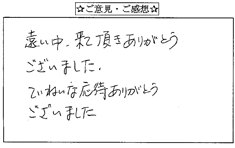 ☆ご意見・ご感想☆
遠い中、来て頂きありがとう
ございました。
ていねいな応待ありがとう
ございました